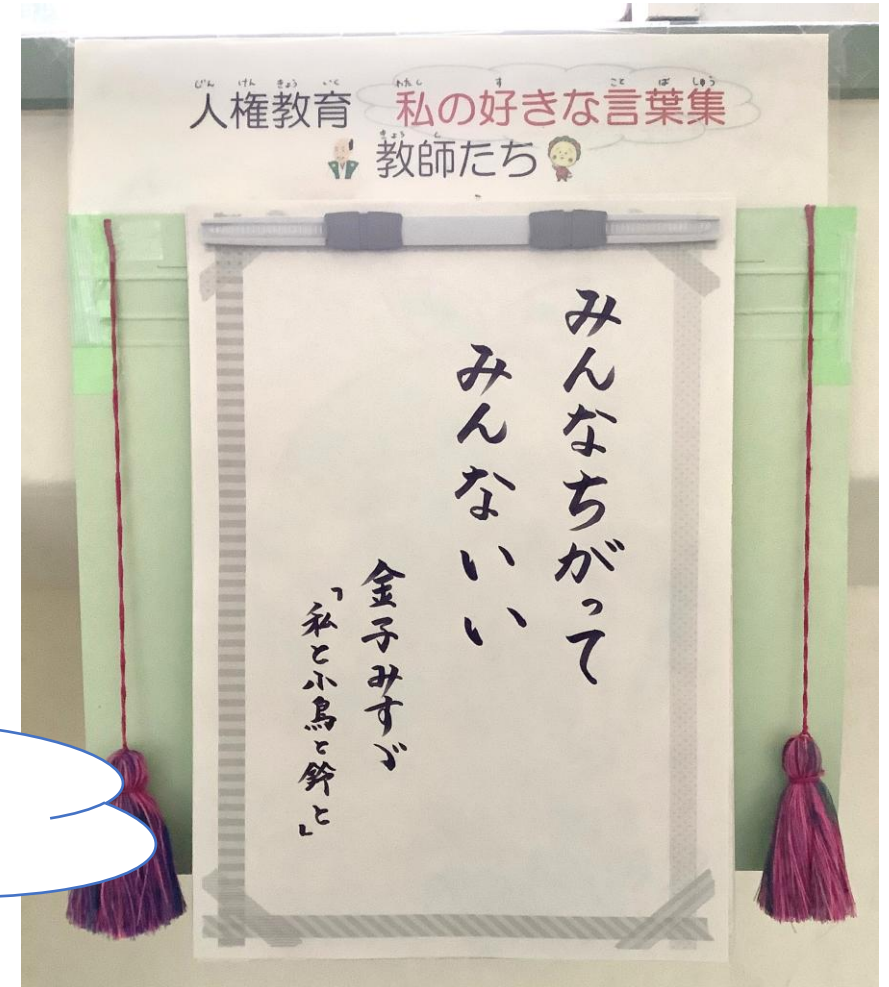 人権教育 私の好きな言葉集
教師たち
みんなちがって
みんないい
金子みすゞ
「私と小鳥と鈴と」